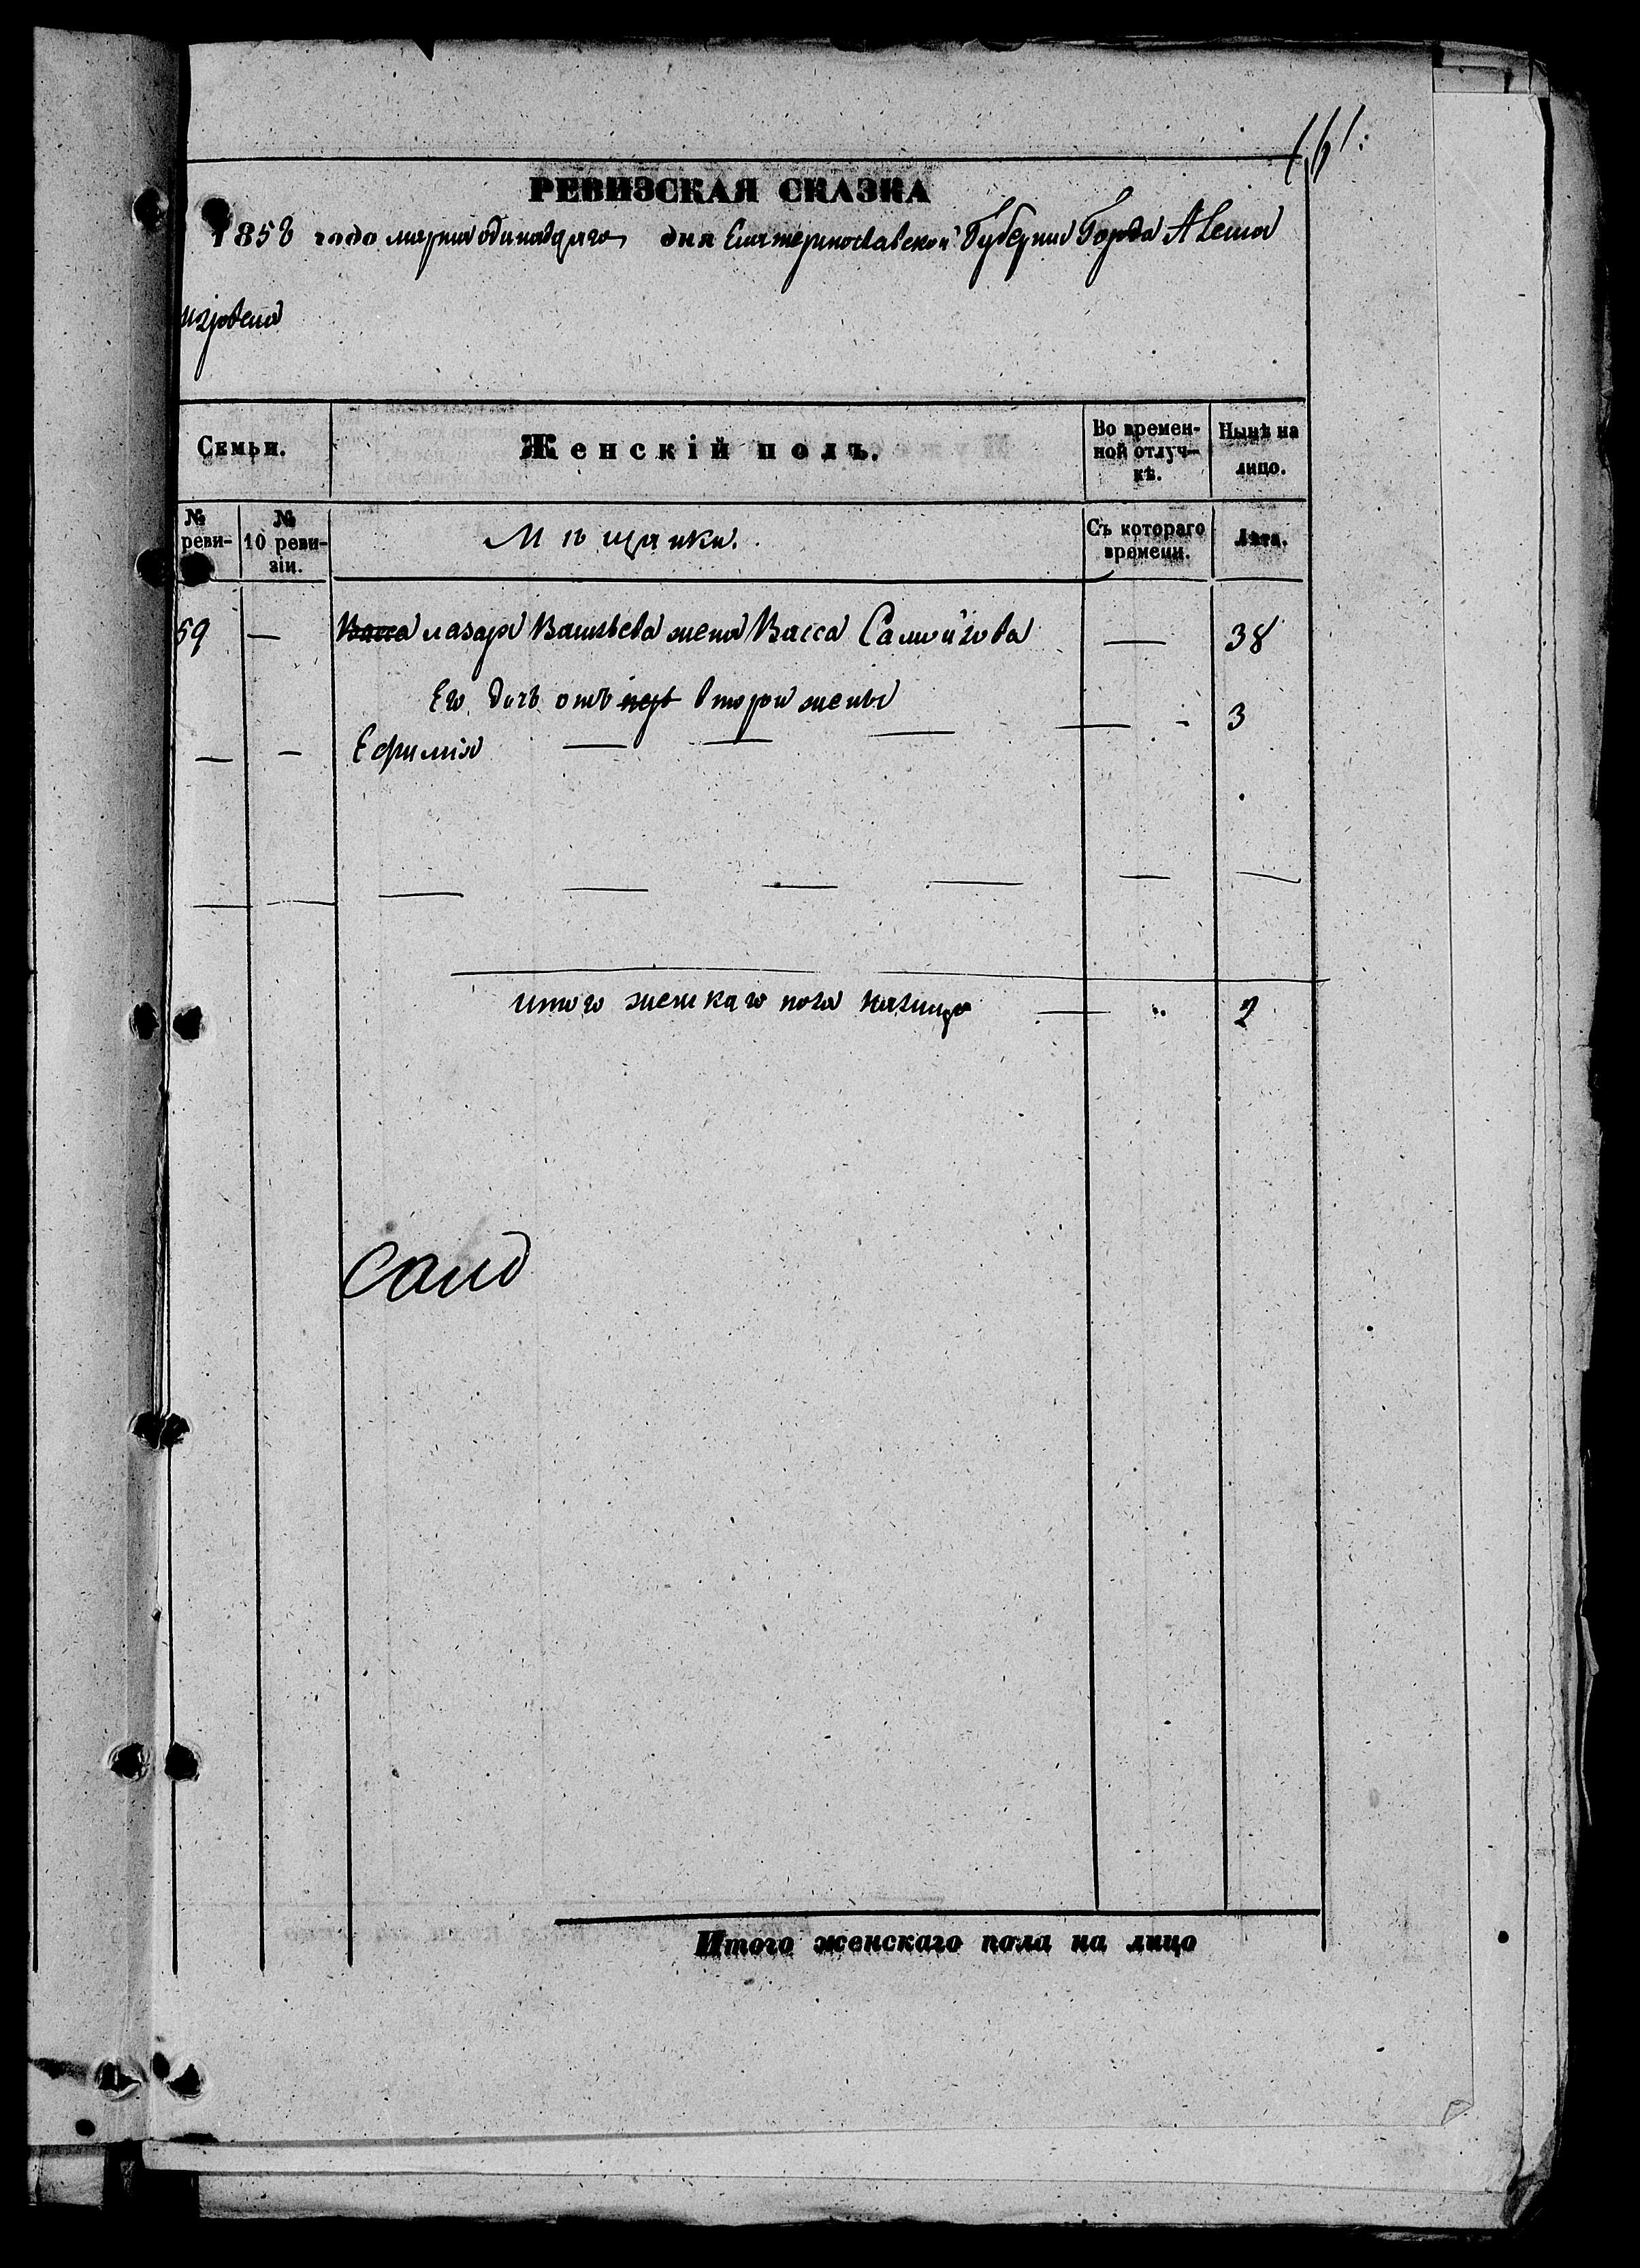 161.
РЕВИЗСКАЯ СКАЗКА
1858 года марта одинадцаго дня Екатеринославской Губернии Города Алекса
ндровска
Семьи.
Женскій полъ.
Во времен-
ной отлуч-
кѣ.
Нынѣ на
лицо.
№
реви-
№
10 реви-
зіи.
Мѣщанки.
Съ котораго
времени.
Лѣта.
59 — Васса лазаря Васильева жена Васса Самойлова — 38
Его дочь отъ перв второй жены
— — Ефимія — — — — 3
— — — — — — — —
итого женскаго пола налицо — 2
Итого женскаго пола на лицо